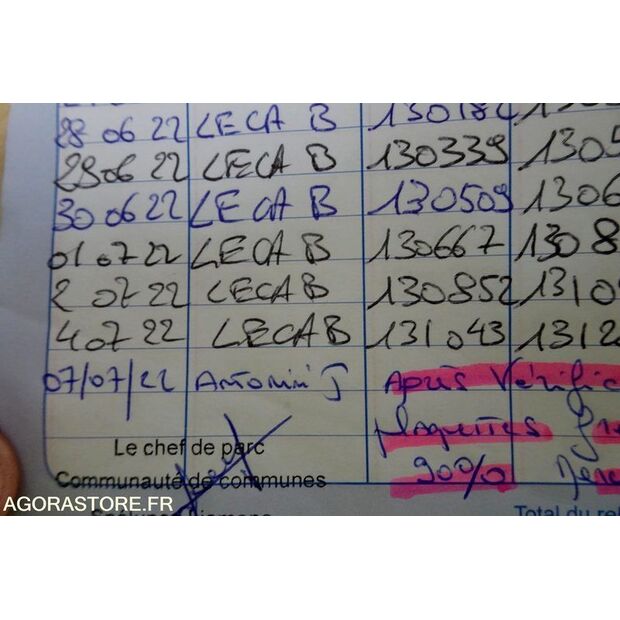 28 06 22 LECA B 130184 130
29 06 22 LECA B 130339 1305
30 06 22 LECA B 130509 1306
01 07 22 LECA B 130667 1308
2 07 22 LECA B 130852 1310
4 07 22 LECA B 131043 1312
07/07/22 Antonini J Après Vérific
plaquettes
Le chef de parc
90%
Communauté de communes
AGORASTORE.FR
Total du re